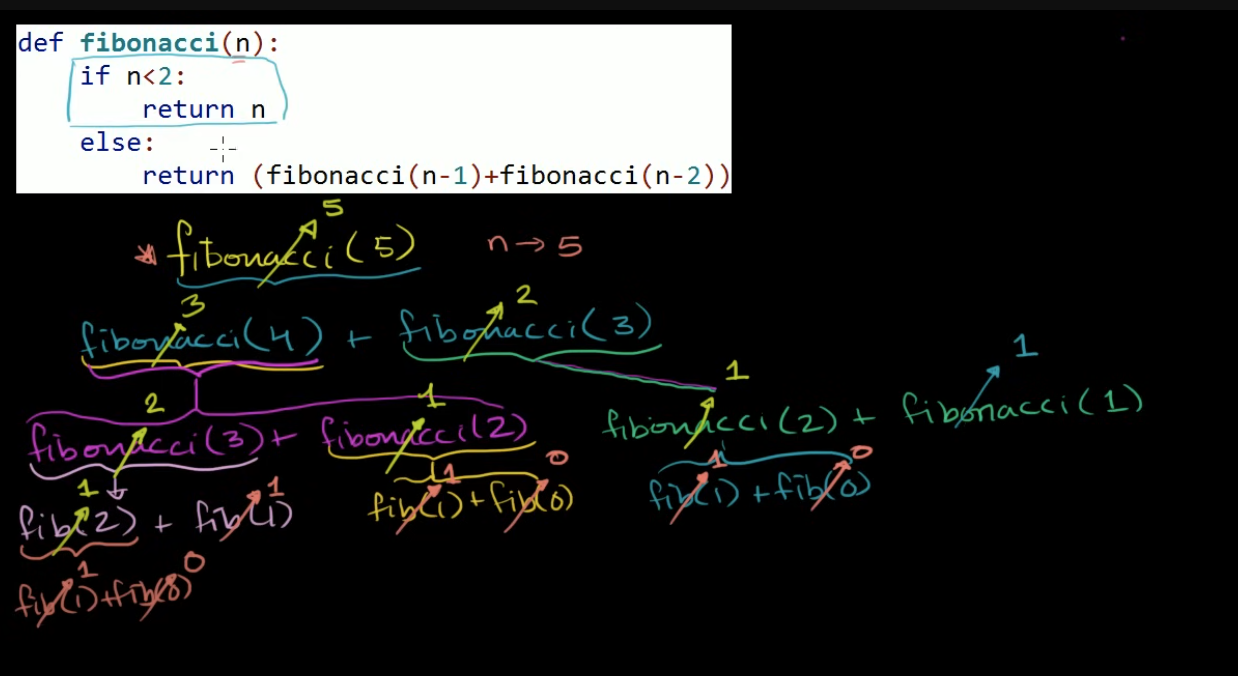 def fibonacci(n):
if n<2:
return n
else:
return (fibonacci(n-1)+fibonacci(n-2))
5
fibonacci(5) n→5
3 2
fibonacci(4) + fibonacci(3)
1
2 1 1
fibonacci(3)+ fibonacci(2) fibonacci(2) + fibonacci(1)
1 1 1 0 1 0
fib(2) + fib(1) fib(1)+fib(0) fib(1)+fib(0)
1 0
fib(1)+fib(0)